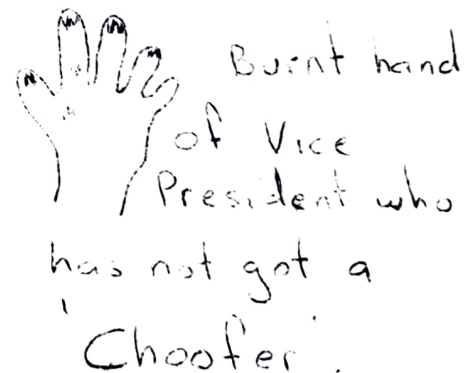 Burnt hand
of Vice
President who
has not got a
'Choofer'.